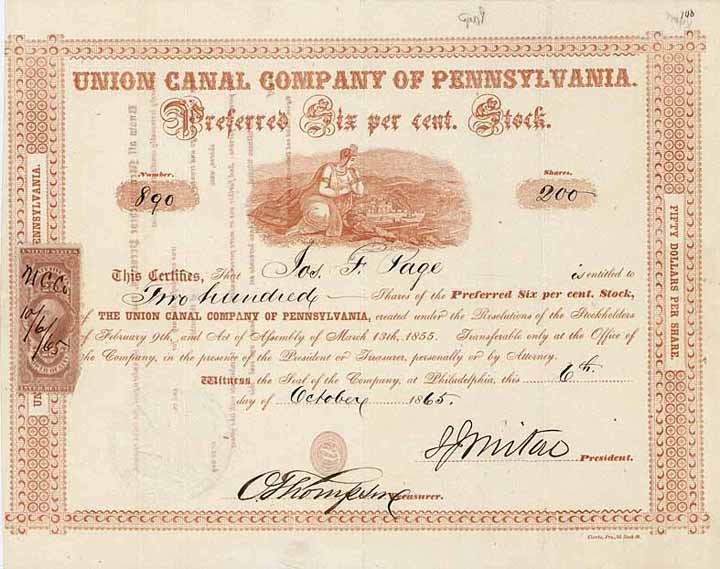 UNION CANAL COMPANY OF PENNSYLVANIA.
Preferred Six per cent. Stock.
Number.
890
Shares.
200
This Certifies, That Jos. F. Page is entitled to
Two hundred Shares of the Preferred Six per cent. Stock,
of THE UNION CANAL COMPANY OF PENNSYLVANIA, created under the Resolutions of the Stockholders
of February 9th, and Act of Assembly of March 13th, 1855. Transferable only at the Office of
the Company, in the presence of the President or Treasurer, personally or by Attorney.
Witness the Seal of the Company, at Philadelphia, this 6th.
day of October 1865.
President.
O Thompson Treasurer.
FIFTY DOLLARS PER SHARE.
PENNSYLVANIA.
UN
UNITED STATES
10/6/65